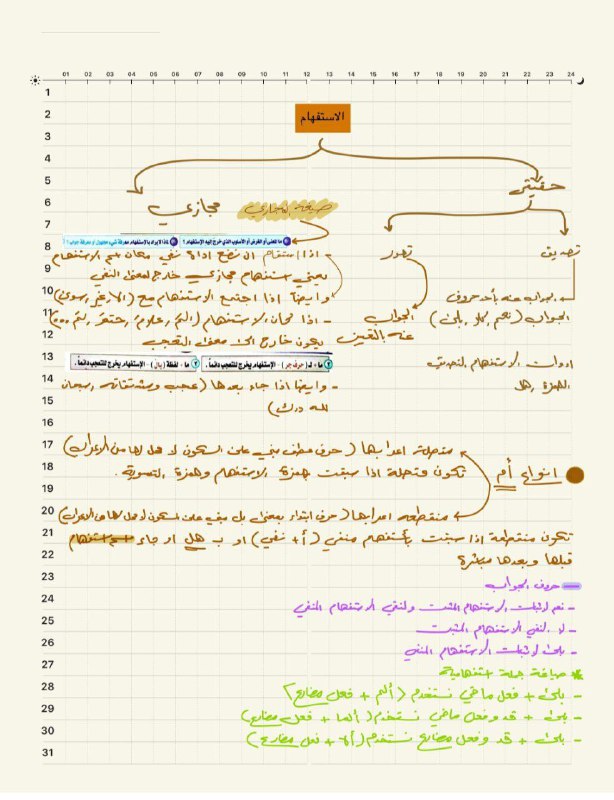 01 02 03 04 05 06 07 08 09 10 11 12 13 14 15 16 17 18 19 20 21 22 23 24
1
2
3
4
5
6
7
8
9
10
11
12
13
14
15
16
17
18
19
20
21
22
23
24
25
26
27
28
29
30
31
الاستفهام
حقيقي
تصديق
الجواب عنه بأحد حروف
الجواب (نعم، كلا، بلى)
ادوات الاستفهام التصديق
الهمزة، هل
تصور
الجواب
عنه بالتعين
مجازي
صيغة المجازي
ما المعنى أو الغرض أو الأسلوب الذي خرج إليه الاستفهام ؟
- اذا استقام ان نضع اداة نفي مكان اسم الاستفهام
يعني استفهام مجازي خارج لمعنى النفي
وايضا اذا اجتمع الاستفهام مع (إلا، غير، سوى)
- اذا كان الاستفهام (إلى، علام، حتام، لم ...)
يكون خارج الى معنى التعجب
ما + لـ (حرف جر) - الإستفهام يخرج للتعجب دائماً .
ما + لفظة (بال) - الإستفهام يخرج للتعجب دائماً .
- وايضا اذا جاء بعدها (عجب ومشتقاته، سبحان
لله درك)
انواع أم
متصلة اعرابها (حرف عطف مبني على السكون لا محل لها من الاعراب)
تكون متصلة اذا سبقت بهمزة الاستفهام وهمزة التسوية.
منقطعه اعرابها (حرف ابتداء بمعنى بل مبني على السكون لا محل لها من الاعراب)
تكون منقطعة اذا سبقت بأستفهام منفي (أ + نفي) او بـ هل او جاء استفهام
قبلها وبعدها مباشرة
حروف الجواب
- نعم لاثبات الاستفهام المثبت ولنفي الاستفهام المنفي
- لا لنفي الاستفهام المثبت
- بلى لاثبات الاستفهام المنفي
* صياغة جملة استفهامية
- بلى + فعل ماضي نستخدم (ألم + فعل مضارع)
- بلى + قد وفعل ماضي نستخدم (ألما + فعل مضارع)
- بلى + قد وفعل مضارع نستخدم (ألا + فعل مضارع)